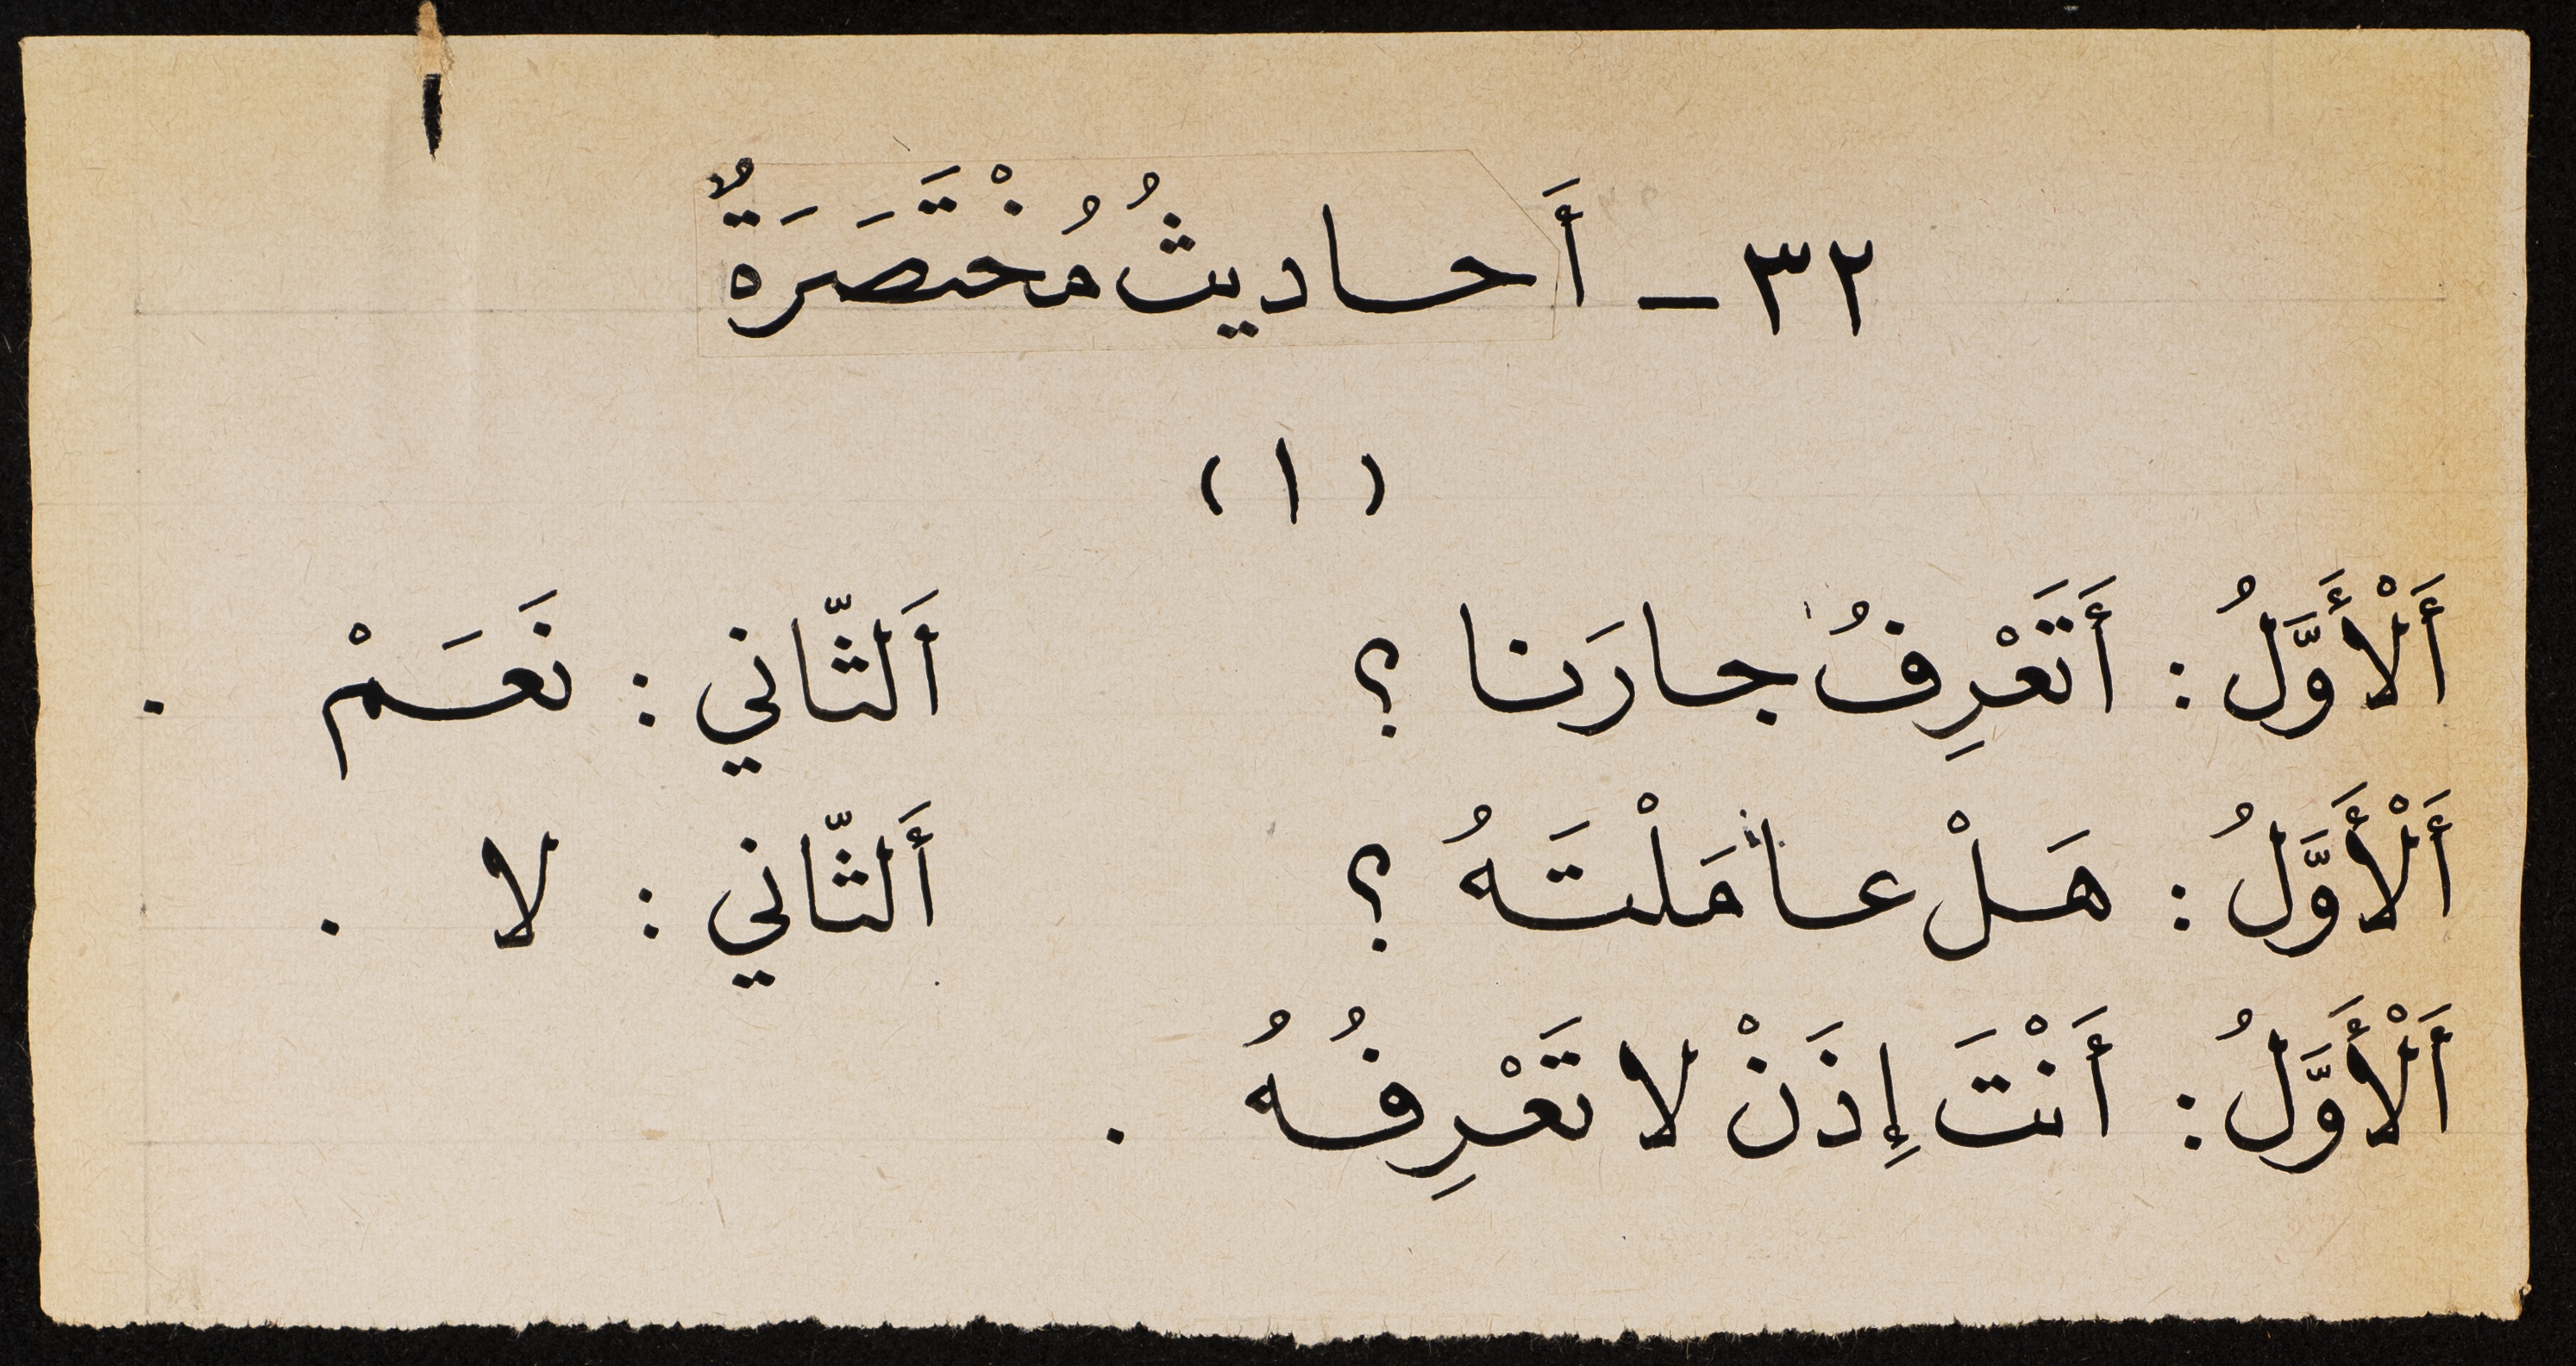 ٣٢ - أَحاديثُ مُخْتَصَرَةٌ
( ١ )
أَلْأَوَّلُ : أَتَعْرِفُ جارَنا ؟ أَلثّاني : نَعَمْ .
أَلْأَوَّلُ : هَلْ عامَلْتَهُ ؟ أَلثّاني : لا .
أَلْأَوَّلُ : أَنْتَ إِذَنْ لا تَعْرِفُهُ .